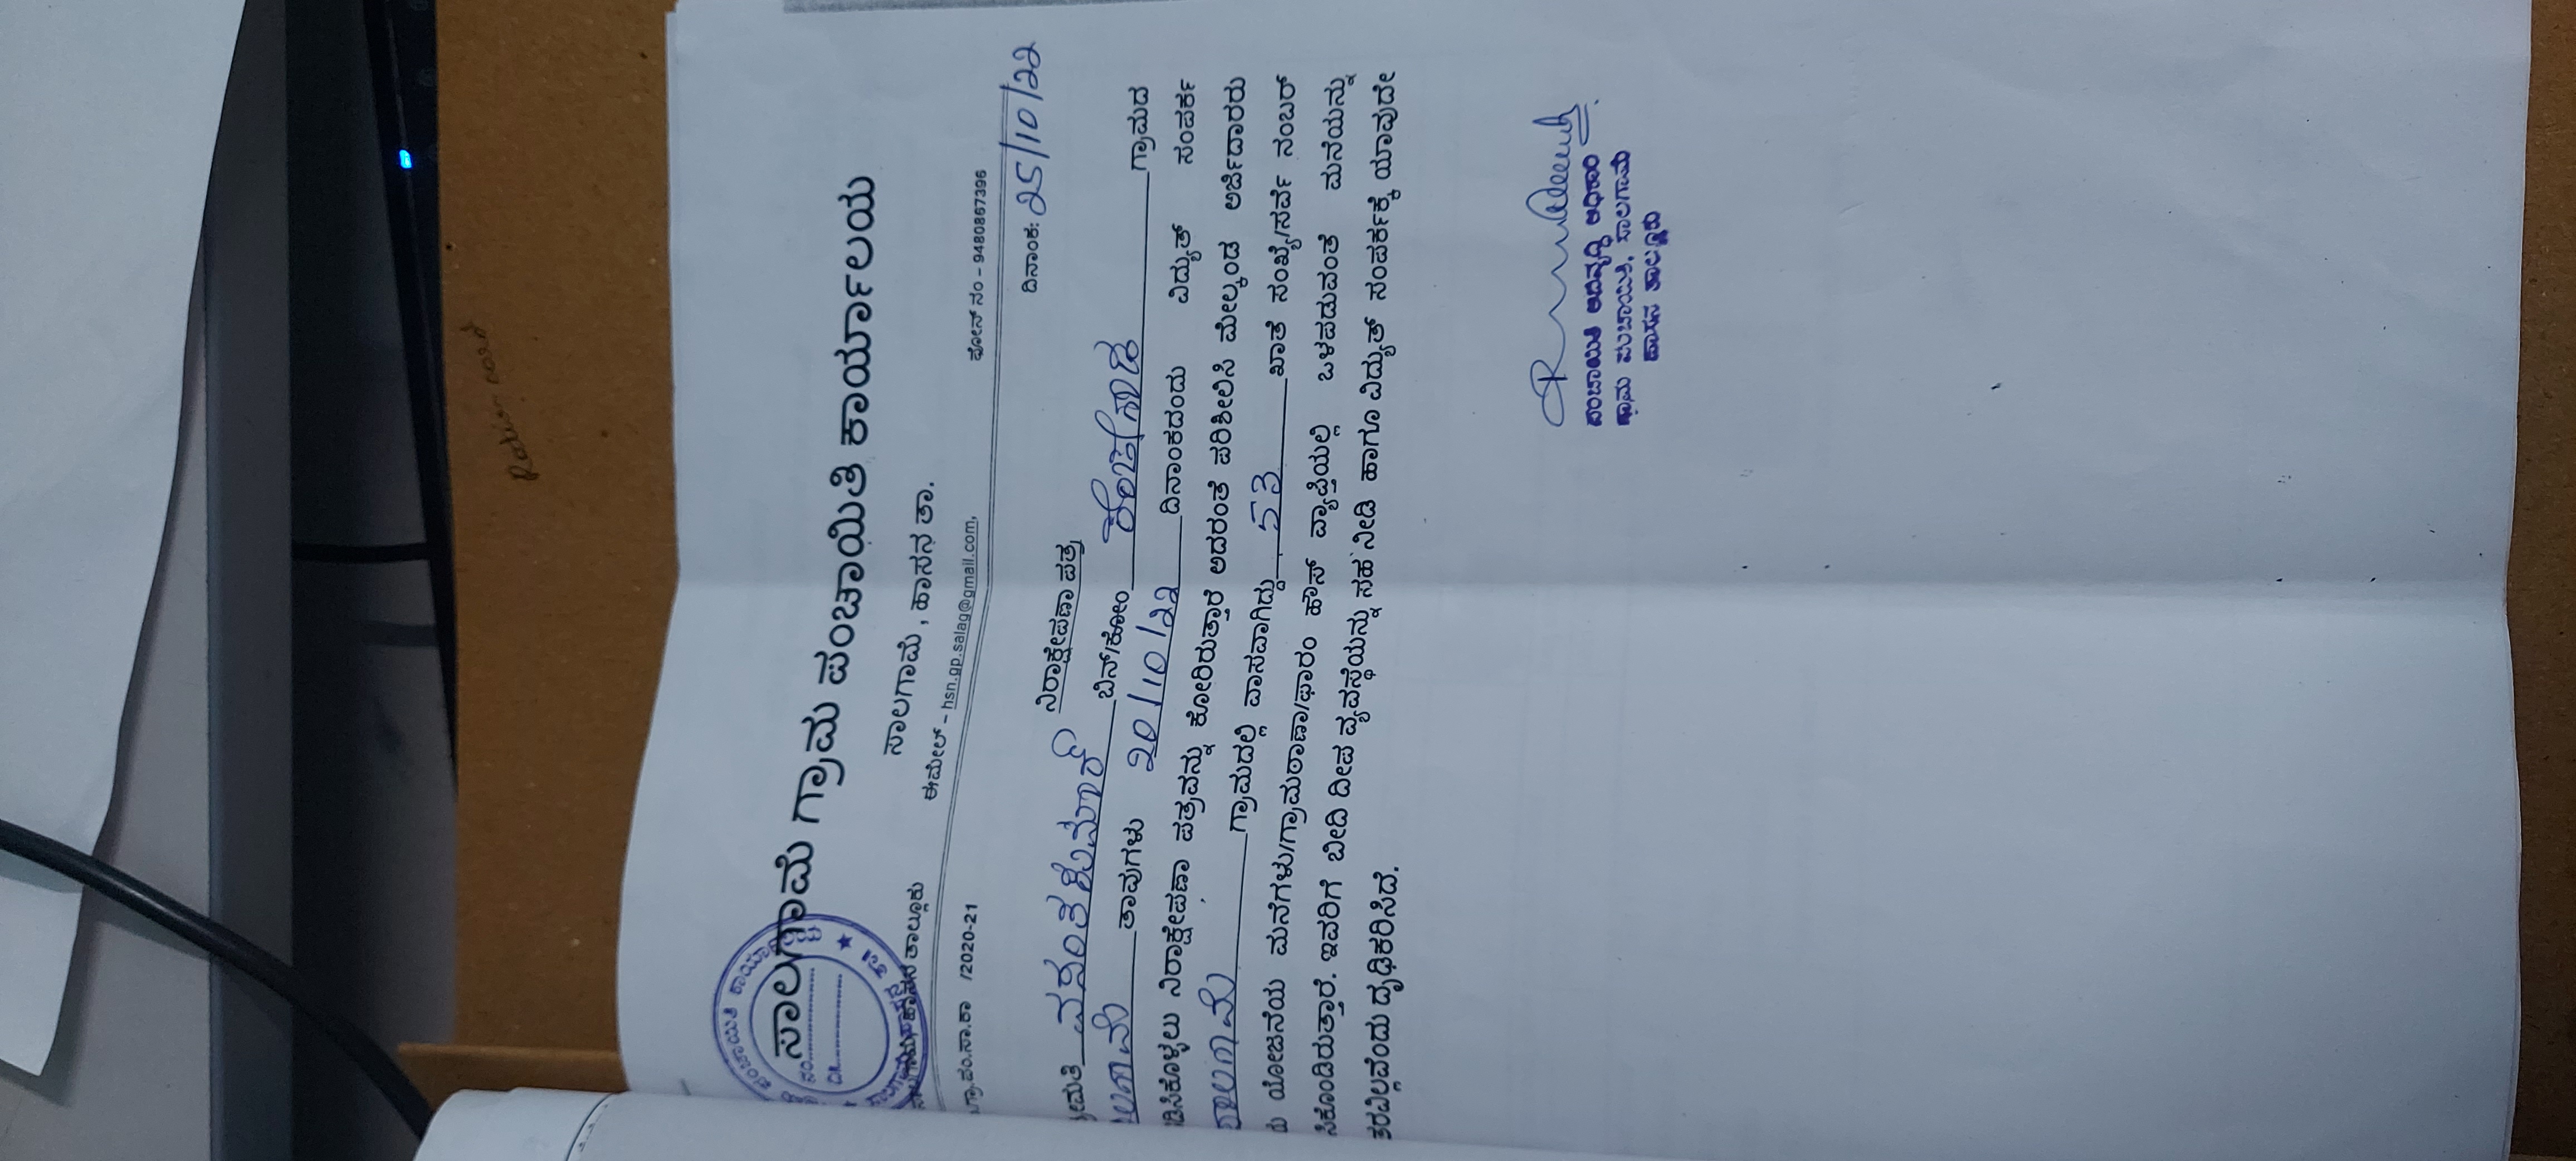 ಸಾಲಗಾಮೆ ಗ್ರಾಮ ಪಂಚಾಯಿತಿ ಕಾರ್ಯಾಲಯ
ಸಾಲಗಾಮೆ, ಹಾಸನ ತಾ.
ಈಮೇಲ್ – hsn.gp.salag@gmail.com,
ಹಾಸನ ತಾಲ್ಲೂಕು
ಫೋನ್ ನಂ – 9480867396
ಗ್ರಾ.ಪಂ.ಸಾ.ಕಾ /2020-21
ದಿನಾಂಕ: 25/10/22
ನಿರಾಕ್ಷೇಪಣಾ ಪತ್ರ
ವಸಂತಕುಮಾರ್ ಬಿನ್/ಕೋಂ ಗ್ರಾಮದ
ತಾವುಗಳು 20/10/22 ದಿನಾಂಕದಂದು ವಿದ್ಯುತ್ ಸಂಪರ್ಕ
ನಿರಾಕ್ಷೇಪಣಾ ಪತ್ರವನ್ನು ಕೋರಿರುತ್ತಾರೆ ಅದರಂತೆ ಪರಿಶೀಲಿಸಿ ಮೇಲ್ಕಂಡ ಅರ್ಜಿದಾರರು
ಗ್ರಾಮದಲ್ಲಿ ವಾಸವಾಗಿದ್ದು 53 ಖಾತೆ ಸಂಖ್ಯೆ/ಸರ್ವೆ ನಂಬರ್
ಯೋಜನೆಯ ಮನೆಗಳು/ಗ್ರಾಮಠಾಣಾ/ಫಾರಂ ಹೌಸ್ ವ್ಯಾಪ್ತಿಯಲ್ಲಿ ಒಳಪಡುವಂತೆ ಮನೆಯನ್ನು
ಇವರಿಗೆ ಬೀದಿ ದೀಪ ವ್ಯವಸ್ಥೆಯನ್ನು ಸಹ ನೀಡಿ ಹಾಗೂ ವಿದ್ಯುತ್ ಸಂಪರ್ಕಕ್ಕೆ ಯಾವುದೇ
ದೃಢಿಕರಿಸಿದೆ.
ಪಂಚಾಯಿತಿ ಅಭಿವೃದ್ಧಿ ಅಧಿಕಾರಿ
ಗ್ರಾಮ ಪಂಚಾಯಿತಿ, ಸಾಲಗಾಮೆ
ಹಾಸನ ತಾಲ್ಲೂಕು